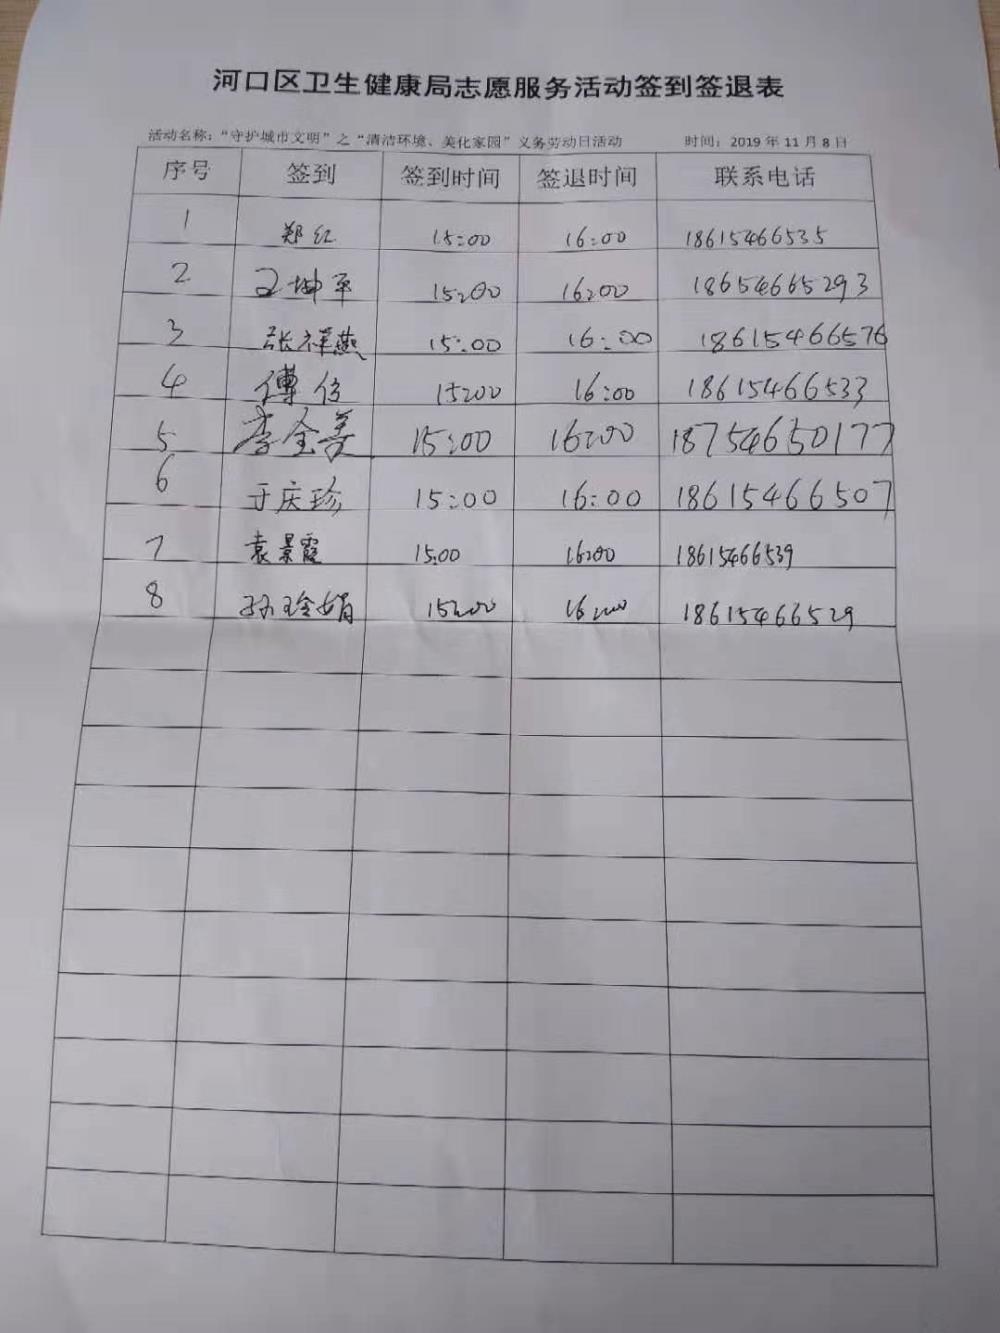 河口区卫生健康局志愿服务活动签到签退表
活动名称：“守护城市文明”之“清洁环境、美化家园”义务劳动日活动 时间：2019年11月8日
序号 签到 签到时间 签退时间 联系电话
1 郑红 15:00 16:00 18615466535
2 坤平 15:00 16:00 18654665293
3 张祥燕 15:00 16:00 18615466576
4 傅 15:00 16:00 18615466533
5 李全美 15:00 16:00 18754650177
6 于庆珍 15:00 16:00 18615466507
7 袁景霞 15:00 16:00 18615466539
8 孙玲娟 15:00 16:00 18615466529